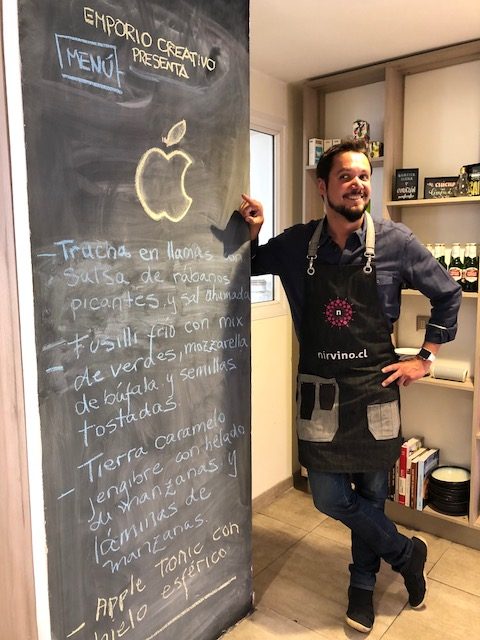 EMPORIO CREATIVO
PRESENTA
MENÚ
- Trucha en llamas con
salsa de rábanos
picantes y sal ahumada
- Fusilli frío con mix
de verdes, mozzarella
de búfala y semillas
tostadas
- Tierra caramelo
jengibre con helado
de manzanas y
láminas de
manzanas.
- Apple Tonic con
hielo esférico
n
nirvino.cl